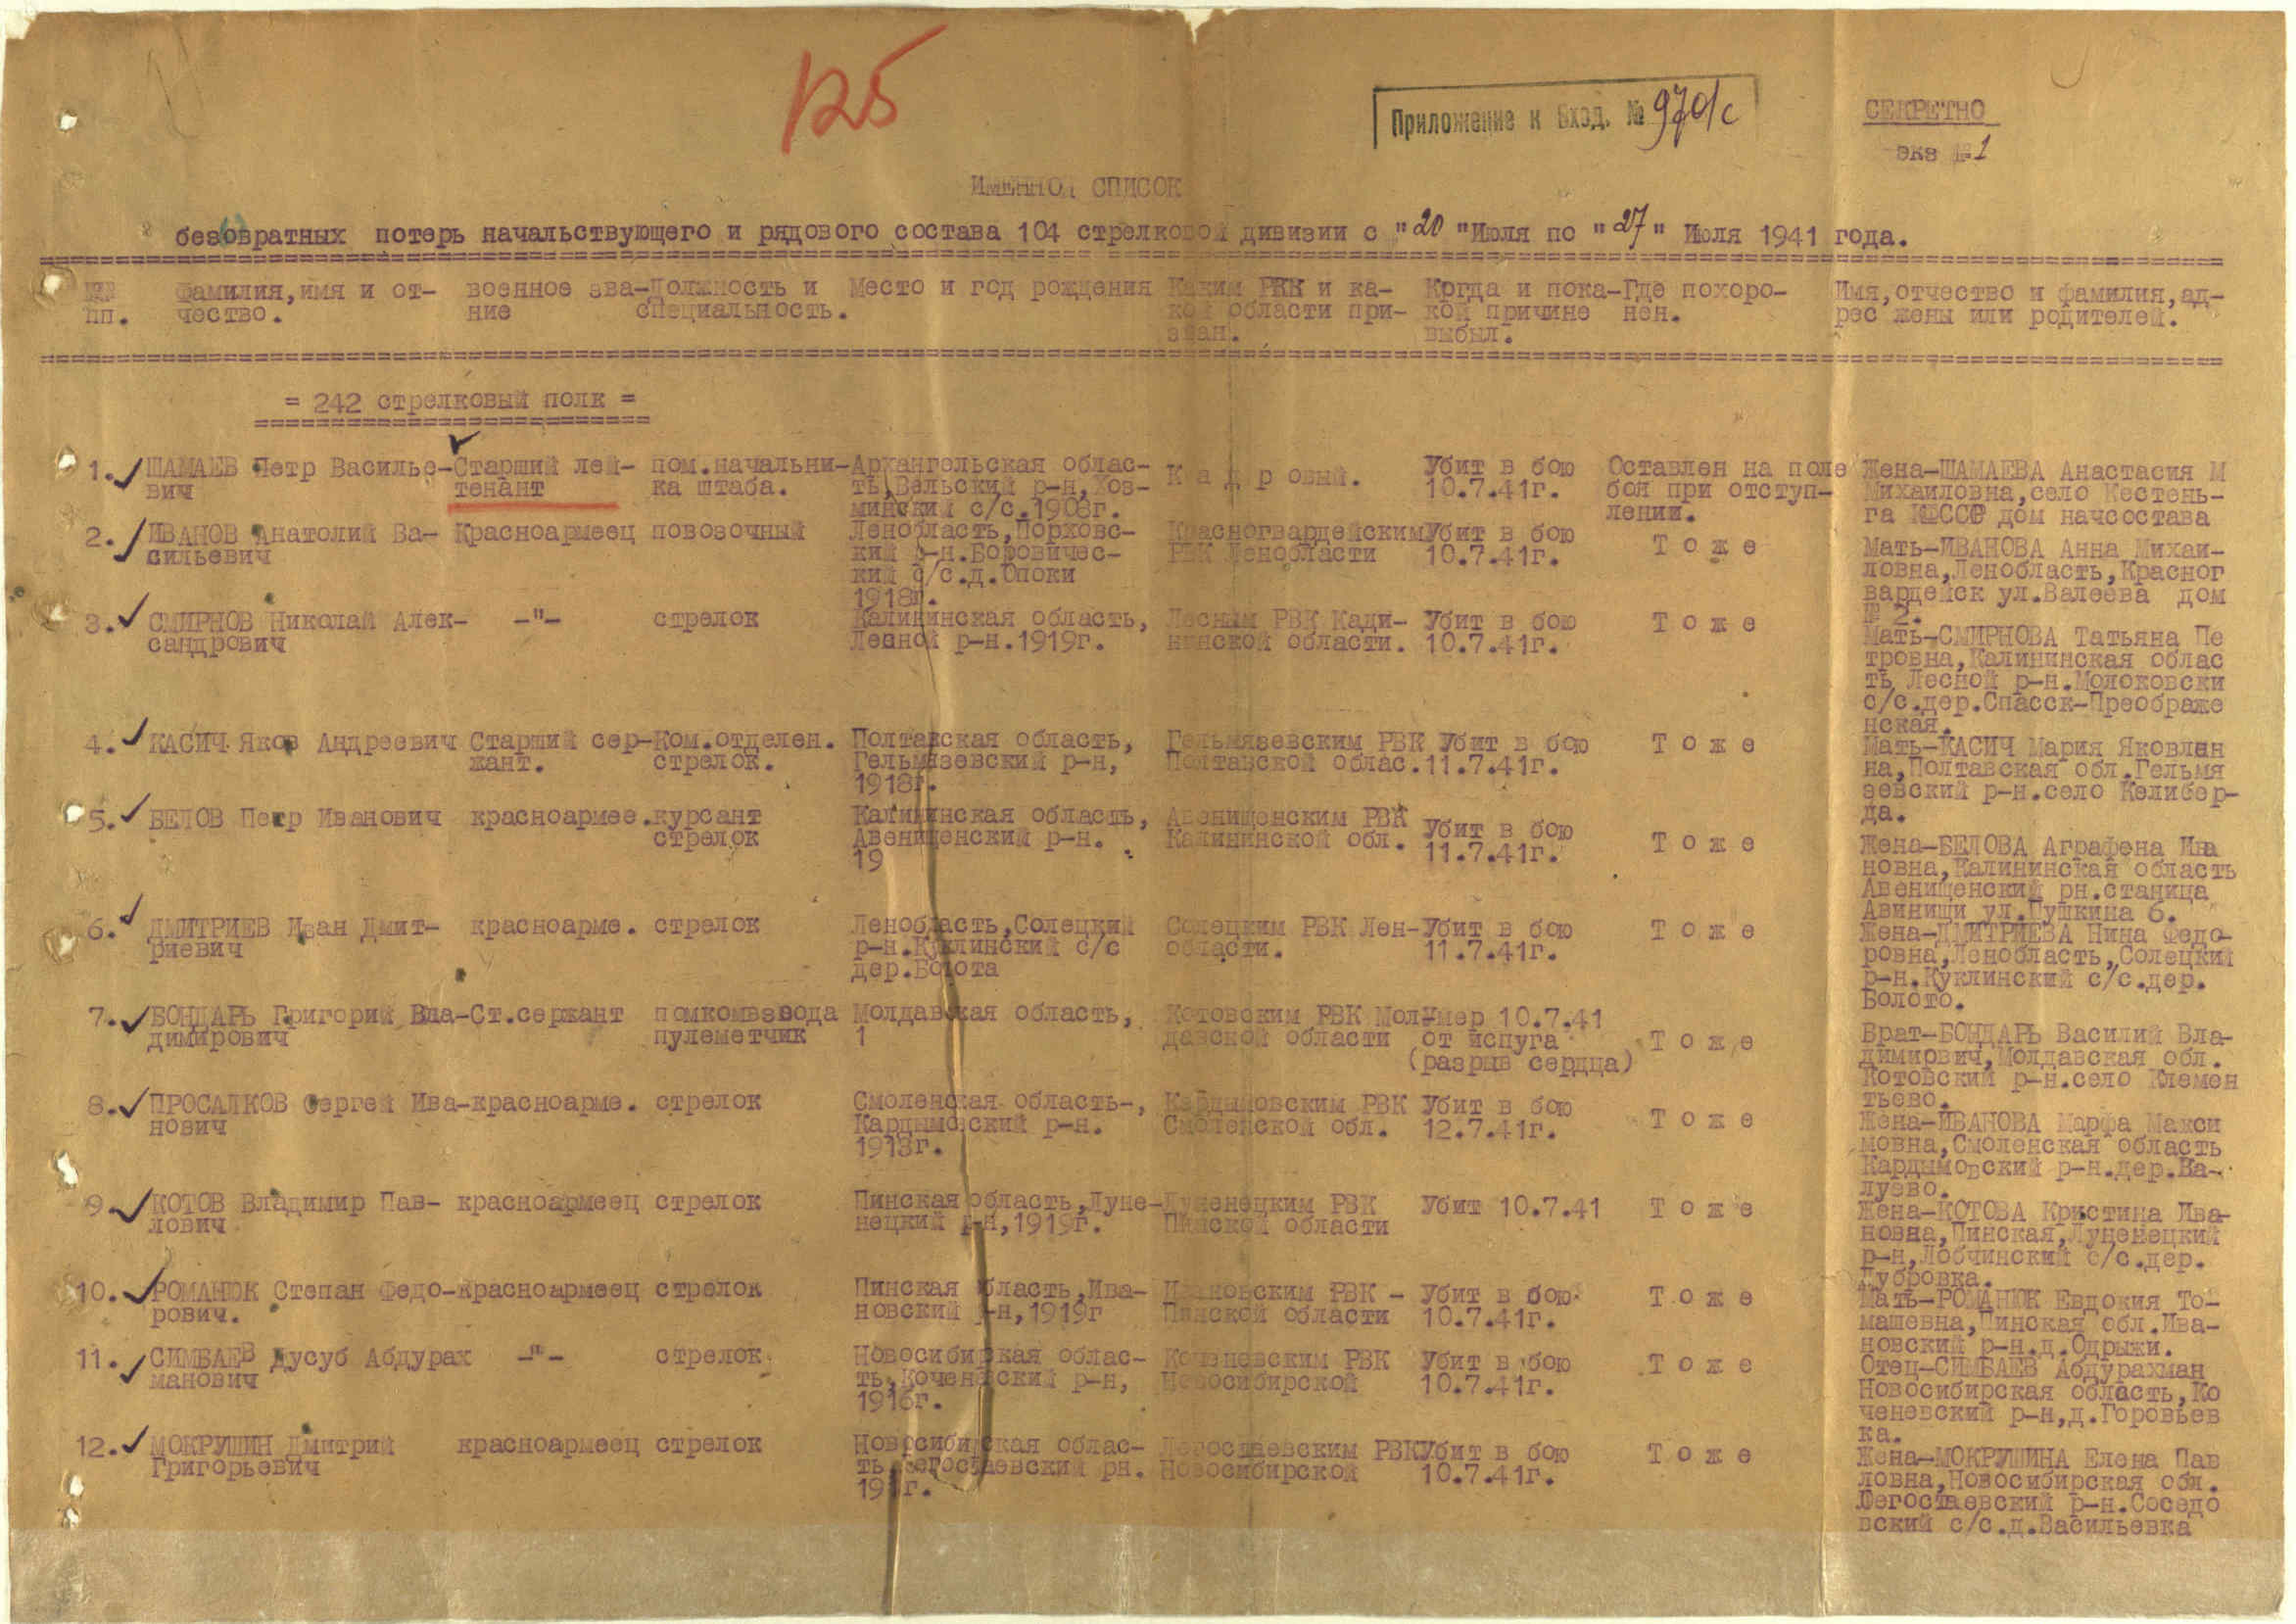 125
Приложение к Вход. № 970/с
СЕКРЕТНО
экз № 1
ИМЕННОЙ СПИСОК
безовратных потерь начальствующего и рядового состава 104 стрелковой дивизии с "20 "Июля по "27" Июля 1941 года.
№№ пп.
Фамилия,имя и от-
чество.
военное зва-
ние
Должность и
специальность.
Место и год рождения
Каким РВК и ка-
кой области при-
зван.
Когда и пока-
кой причине
выбыл.
Где похоро-
нен.
Имя,отчество и фамилия,ад-
рес жены или родителей.
= 242 стрелковый полк =
1. ШАМАЕВ Петр Василье-
вич
Старший лей-
тенант
пом.начальни-
ка штаба.
Архангельская облас-
ть,Вельский р-н,Хоз-
минский с/с.1908г.
К а д р овый.
Убит в бою
10.7.41г.
Оставлен на поле
боя при отступ-
лении.
Жена-ШАМАЕВА Анастасия М
Михаиловна,село Кестень-
га КФССР дом начсостава
2. ИВАНОВ Анатолий Ва-
сильевич
Красноармеец
повозочный
Ленобласть,Порховс-
кий р-н.Боровичес-
кий с/с.д.Опоки
1918г.
Красногвардейским
РВК Ленобласти
Убит в бою
10.7.41г.
Т о ж е
Мать-ИВАНОВА Анна Михаи-
ловна,Ленобласть,Красног
вардейск ул.Валеева дом
№ 2.
3. СМИРНОВ Николай Алек-
сандрович
-"-
стрелок
Калининская область,
Лесной р-н.1919г.
Лесным РВК Кади-
нинской области.
Убит в бою
10.7.41г.
Т о ж е
Мать-СМИРНОВА Татьяна Пе
тровна,Калининская облас
ть Лесной р-н.Молоковски
с/с.дер.Спасск-Преображе
нская.
4. КАСИЧ Яков Андреевич
Старший сер-
жант.
Ком.отделен.
стрелок.
Полтавская область,
Гельмязевский р-н,
1918г.
Гельмязевским РВК
Полтавской облас.
Убит в бою
11.7.41г.
Т о ж е
Мать-КАСИЧ Мария Яковлен
на,Полтавская обл.Гельмя
зевский р-н.село Келибер-
да.
5. БЕЛОВ Петр Иванович
красноармее.
курсант
стрелок
Калининская область,
Авенищенский р-н.
19
Авенищенским РВК
Калининской обл.
Убит в бою
11.7.41г.
Т о ж е
Жена-БЕЛОВА Аграфена Ива
новна,Калининская область
Авенищенский рн.станица
Авинищи ул.Пушкина 6.
6. ДМИТРИЕВ Иван Дмит-
риевич
красноарме.
стрелок
Ленобласть,Солецкий
р-н.Куклинский с/с
дер.Болота
Солецким РВК Лен-
области.
Убит в бою
11.7.41г.
Т о ж е
Жена-ДМИТРИЕВА Нина Федо-
ровна,Ленобласть,Солецкий
р-н.Куклинский с/с.дер.
Болото.
7. БОНДАРЬ Григорий Вла-
димирович
Ст.сержант
помкомвзвода
пулеметчик
Молдавская область,
1
Котовским РВК Мол-
давской области
Умер 10.7.41
от испуга
(разрыв сердца)
Т о ж е
Брат-БОНДАРЬ Василий Вла-
димирвич,Молдавская обл.
Котовский р-н.село Клемен
тьево.
8. ПРОСАЛКОВ Сергей Ива-
нович
красноарме.
стрелок
Смоленская область-,
Кардымовский р-н.
1918г.
Кардымовским РВК
Смоленской обл.
Убит в бою
12.7.41г.
Т о ж е
Жена-ИВАНОВА Марфа Макси
мовна,Смоленская область
Кардымовский р-н.дер.Ва-
луево.
9. КОТОВ Владимир Пав-
лович
красноармеец
стрелок
Пинская область,Луне-
нецкий р-н,1919г.
Луненецким РВК
Пинской области
Убит 10.7.41
Т о ж е
Жена-КОТОВА Кристина Ива-
новна,Пинская,Луненецкий
р-н,Лобчинский с/с.дер.
Дубровка.
10. РОМАНЮК Степан Федо-
рович.
красноармеец
стрелок
Пинская бласть,Ива-
новский р-н,1919г
Ивановским РВК -
Пинской области
Убит в бою
10.7.41г.
Т о ж е
Мать-РОМАНЮК Евдокия То-
машевна,Пинская обл.Ива-
новский р-н.д.Одрыжи.
11. СИМБАЕВ Дусуб Абдурах
манович
-"-
стрелок
Новосибирская облас-
ть,Коченевский р-н,
1916г.
Коченевским РВК
Новосибирской
Убит в бою
10.7.41г.
Т о ж е
Отец-СИМБАЕВ Абдурахман
Новосибирская область,Ко
ченевский р-н,д.Горовьев
ка.
12. МОКРУШИН Дмитрий
Григорьевич
красноармеец
стрелок
Новосибирская облас-
ть Легостаевский рн.
Легостаевским РВК
Новосибирской
Убит в бою
10.7.41г.
Т о ж е
Жена-МОКРУШИНА Елена Пав
ловна,Новосибирская обл.
Легостаевский р-н.Соседо
вский с/с.д.Васильевка